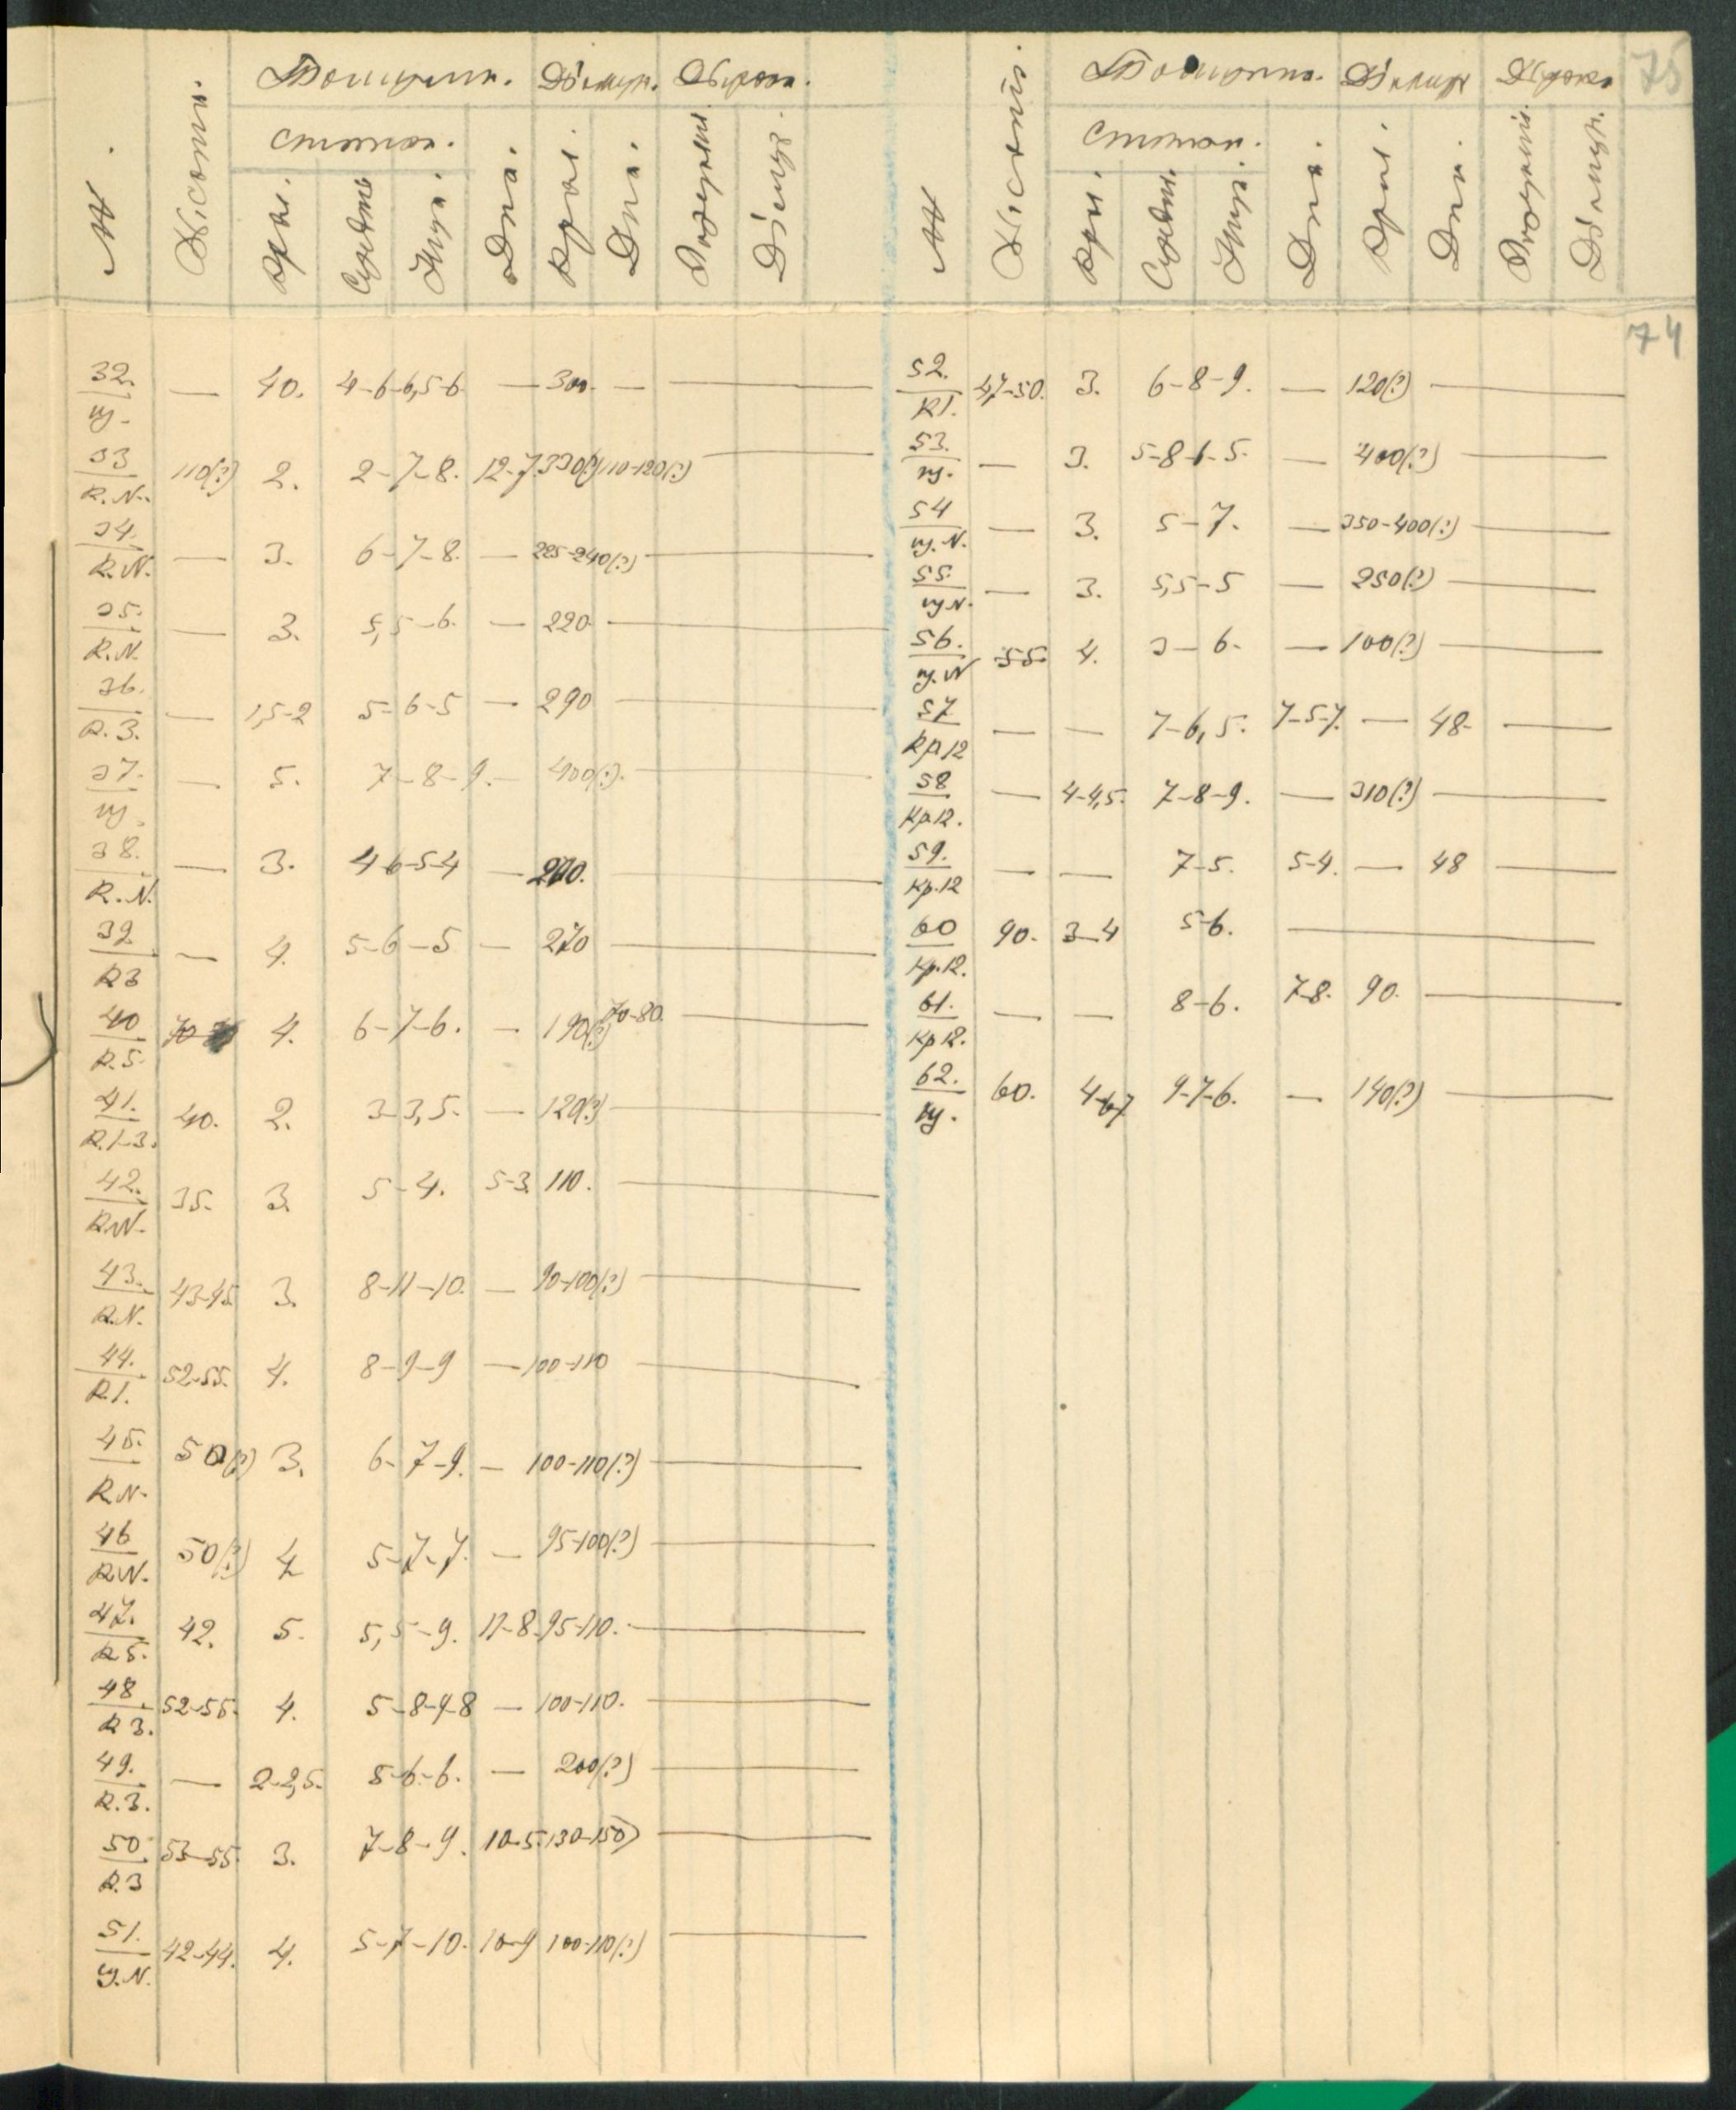 75
74
№ Высота. Толщина. Диаметр. Дырка.
стенок. Дна. Края. Дна.
Края. Середина
№ Высота. Толщина. Диаметр Дырка
стенок. Дна. Края. Дна.
Края. Середина
32. — 40. 4-6-6,5-6 — 300. — —
у.
33 110(?) 2. 2-7-8. 12-7. 330(?) 110-120(?) —
R.N.
34. — 3. 6-7-8. — 225-240(?) —
R.N.
35. — 3. 5,5-6. — 220. —
R.N.
36. — 1,5-2 5-6-5 — 290 —
R.3.
37. — 5. 7-8-9. — 400(?). —
у.
38. — 3. 4-6-5-4 — —
R.N.
39. — 4. 5-6-5 — 270 —
R3
40 4. 6-7-6. — 190(?) 70-80. —
R.5.
41. 40. 2. 3-3,5. — 120(?) —
R.1-3.
42. 35. 3. 5-4. 5-3. 110. —
R.N.
43. 43-45. 3. 8-11-10. — 90-100(?) —
R.N.
44. 52-55. 4. 8-9-9 — 100-110 —
R.1.
45. 50(?) 3. 6-7-9. — 100-110(?) —
R.N.
46 50(?) 4 5-7-7. — 95-100(?) —
R.N.
47. 42. 5. 5,5-9. 11-8. 95-110. —
R.5.
48 52-55. 4. 5-8-9-8 — 100-110. —
R3.
49. — 2-2,5. 5-6-6. — 200(?) —
R.3.
50. 53-55. 3. 7-8-9. 10-5. 130-150 —
R.3
51. 42-44. 4. 5-7-10. 10-9 100-110(?) —
у.N.
52. 47-50. 3. 6-8-9. — 120(?) —
R1.
53. — 3. 5-8-6-5. — 400(?) —
у.
54 — 3. 5-7. — 350-400(?) —
у.N.
55. — 3. 5,5-5 — 250(?) —
у.N.
56. 55. 4. 3-6. — 100(?) —
у.N
57 — — 7-6,5. 7-5-7. — 48. —
Кр12
58 — 4-4,5. 7-8-9. — 310(?) —
Кр12.
59. — — 7-5. 5-4. — 48 —
Кр.12
60 90. 3-4 5-6. —
Кр.12.
61. — — 8-6. 7-8. 90. —
Кр12.
62. 60. 4-6-7 9-7-6. — 140(?) —
у.